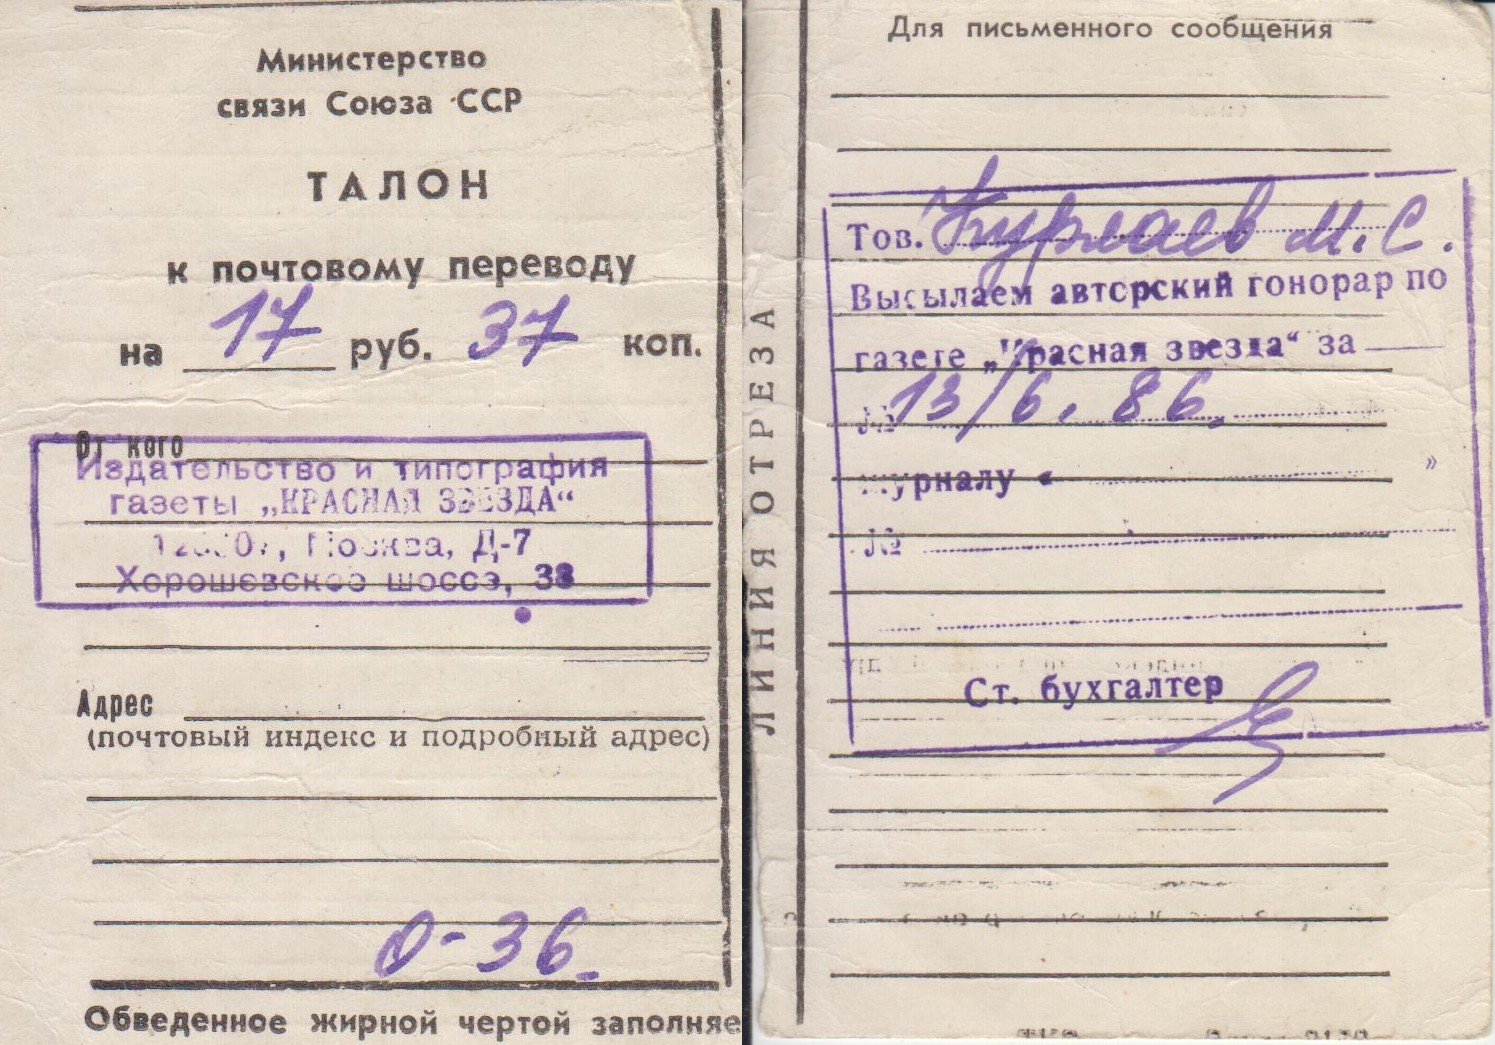 Министерство
связи Союза ССР
ТАЛОН
к почтовому переводу
на 17 руб. 37 коп.
От кого
Издательство и типография
газеты „КРАСНАЯ ЗВЕЗДА“
Москва, Д-7
Хорошевское шоссе, 38
Адрес
(почтовый индекс и подробный адрес)
0-36.
Обведенное жирной чертой заполняе
ЛИНИЯ ОТРЕЗА
Для письменного сообщения
Тов. Курлаев М.С.
Высылаем авторский гонорар по
газете „Красная звезда“ за
№ 13/6. 86.
журналу « »
№
Ст. бухгалтер